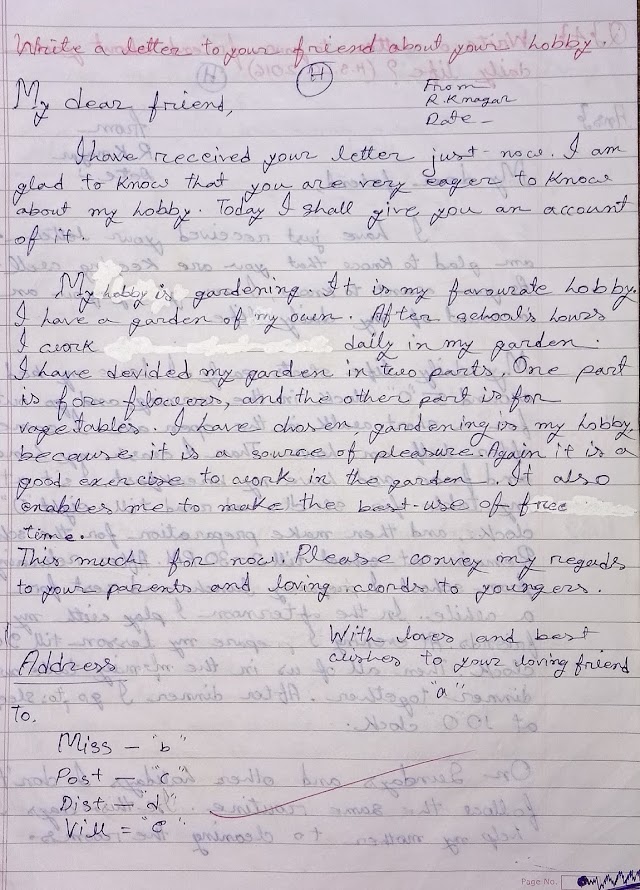 Write a letter to your friend about your hobby.
(H)
From
R.K nagar
Date -
My dear friend,
I have received your letter just now. I am
glad to know that you are very eager to know
about my hobby. Today I shall give you an account
of it.
My hobby is gardening. It is my favourate hobby.
I have a garden of my own. After school's hours
I work daily in my garden.
I have devided my garden in two parts. One part
is for flowers, and the other part is for
vagetables. I have chosen gardening is my hobby
because it is a source of pleasure. Again it is a
good exercise to work in the garden. It also
enables me to make the best use of free
time.
This much for now. Please convey my regads
to your parents and loving words to youngers.
With loves and best
wishes to your loving friend
"a"
Address
To.
Miss - "b"
Post - "c"
Dist - "d"
Vill = "e"
Page No.